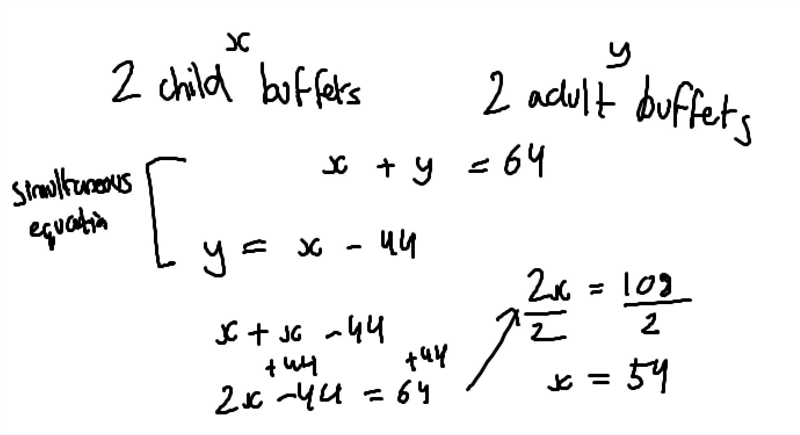 x y
2 child buffets 2 adult buffets
simultaneous equation
x + y = 64
y = x - 44
x + x - 44
+44 +44
2x - 44 = 64
2x/2 = 108/2
x = 54